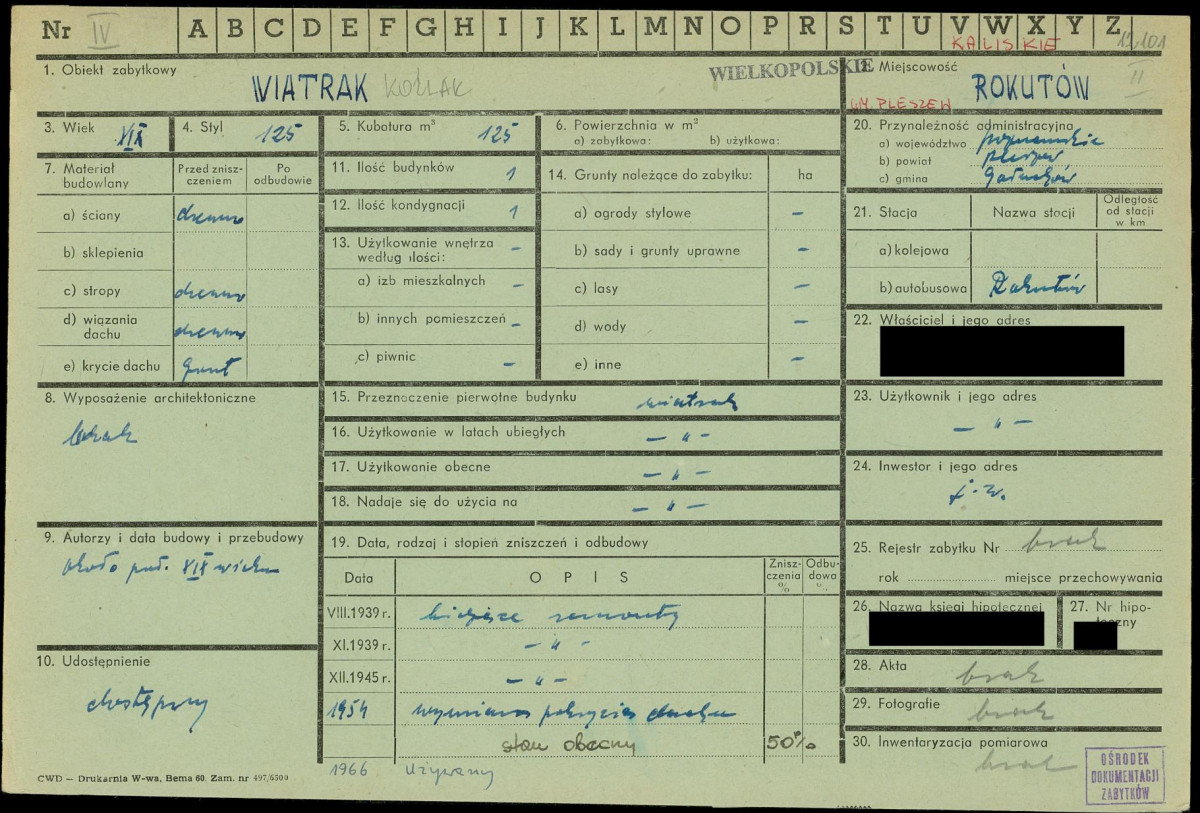 Nr IV A B C D E F G H I J K L M N O P R S T U V W X Y Z
KALISKIE 12.101
1. Obiekt zabytkowy
WIATRAK KOŹLAK
WIELKOPOLSKIE
2. Miejscowość II
GM. PLESZEW ROKUTÓW
3. Wiek XIX
4. Styl 125
5. Kubatura m³ 125
6. Powierzchnia w m²
a) zabytkowa: b) użytkowa:
7. Materiał budowlany
Przed znisz-
czeniem
Po
odbudowie
a) ściany drewno
b) sklepienia
c) stropy drewno
d) wiązania
dachu drewno
e) krycie dachu gont
8. Wyposażenie architektoniczne
brak
9. Autorzy i data budowy i przebudowy
około poł. XIX wieku
10. Udostępnienie
dostępny
11. Ilość budynków 1
12. Ilość kondygnacji 1
13. Użytkowanie wnętrza
według ilości: –
a) izb mieszkalnych –
b) innych pomieszczeń –
c) piwnic –
14. Grunty należące do zabytku: ha
a) ogrody stylowe –
b) sady i grunty uprawne –
c) lasy –
d) wody –
e) inne –
15. Przeznoczenie pierwotne budynku wiatrak
16. Użytkowanie w latach ubiegłych – „ –
17. Użytkowanie obecne – „ –
18. Nadaje się do użycia na – „ –
19. Data, rodzaj i stopień zniszczeń i odbudowy
Data
OPIS
Znisz-
czenia
%
Odbu-
dowa
%
VIII.1939 r. bieżące remonty
XI.1939 r. – „ –
XII.1945 r. – „ –
1954 wymiana pokrycia dachu
stan obecny 50%
1966 używany
20. Przynależność administracyjna
a) województwo poznańskie
b) powiat pleszew
c) gmina Gołuchów
21. Stacja
Nazwa stacji
Odległość
od stacji
w km
a) kolejowa
b) autobusowa Rokutów
22. Właściciel i jego adres
23. Użytkownik i jego adres
– „ –
24. Inwestor i jego adres
j. w.
25. Rejestr zabytku Nr brak
rok miejsce przechowywania
26. Nazwa księgi hipotecznej
27. Nr hipo-
teczny
28. Akta brak
29. Fotografie brak
30. Inwentaryzacja pomiarowa
brak
OŚRODEK
DOKUMENTACJI
ZABYTKÓW
CWD – Drukarnia W-wa, Bema 60. Zam. nr 497/6500